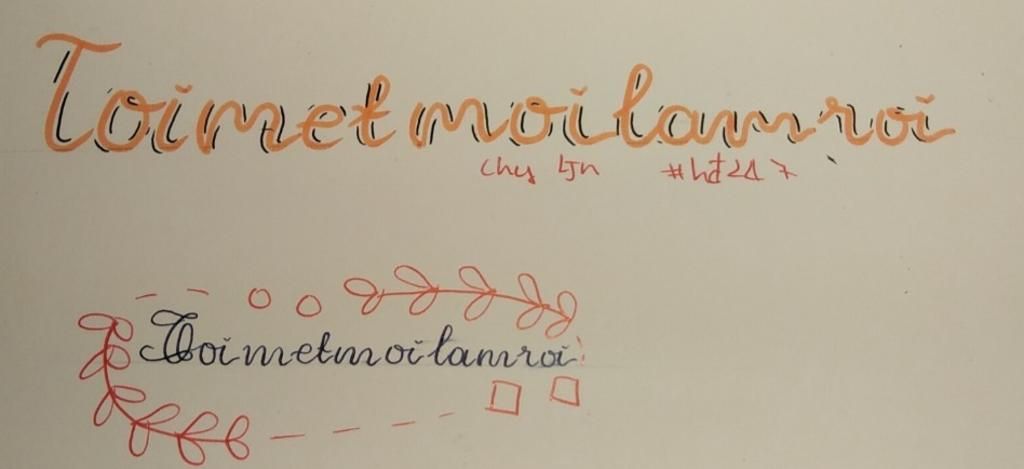 Toimetmoilamroi
#hđ247
Toimetmoilamroi